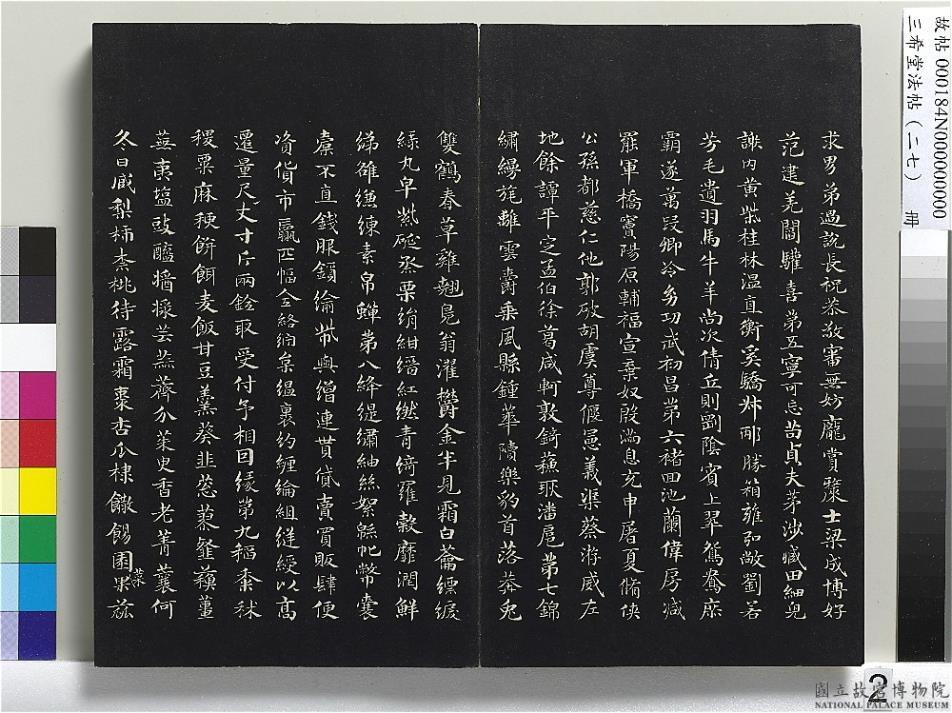 故帖 000184N000000000
三希堂法帖（二七） 冊
求男弟過說長祝恭敬審無妨龐賞贛士梁成博好
范建羌閻驩喜第五寧可忘苟貞夫茅涉臧田細兒
謝內黃柴桂林溫直衡奚驕叔邴勝箱雍弘敞劉若
芳毛遺羽馬牛羊尚次倩丘則劉陰賓上翠鴛鴦庶
霸遂萬段卿冷幼功武初昌第六褚回池蘭偉房減
罷軍橋竇陽原輔福宣棄奴殷滿息充申屠夏脩俠
公孫都慈仁他郭破胡虞尊偃憲義渠蔡游威左
地餘譚平定孟伯徐葛咸軻敦錡蘇耿潘扈第七錦
繡縵旄離雲爵乘風縣鍾華隤樂豹首落莽兔
雙鶴春草雞翹鳧翁濯鬱金半見霜白䈊縹綟
綠丸皁紫硟烝栗絹紺縉紅繎青綺羅縠靡潤鮮
綈雒縑練素帛蟬第八絳緹繡紬絲絮綿幣囊
橐不直錢服瑣緰與繒連貰貸賣買販肆便
資貨市贏匹幅全絡納枲縕裹約纏綸組縌綬以高
遷量尺丈寸斤兩銓取受付予相因緣第九稻黍秫
稷粟麻秔餅餌麦飯甘豆羹葵韭葱蓼韰蘇薑
蕪荑鹽豉醯醬漿芸蒜薺介茱臾香老菁蘘何
冬日臧梨柿柰桃待露霜棗杏瓜棣饊餳園菜果蓏
2
國立故宮博物院
NATIONAL PALACE MUSEUM